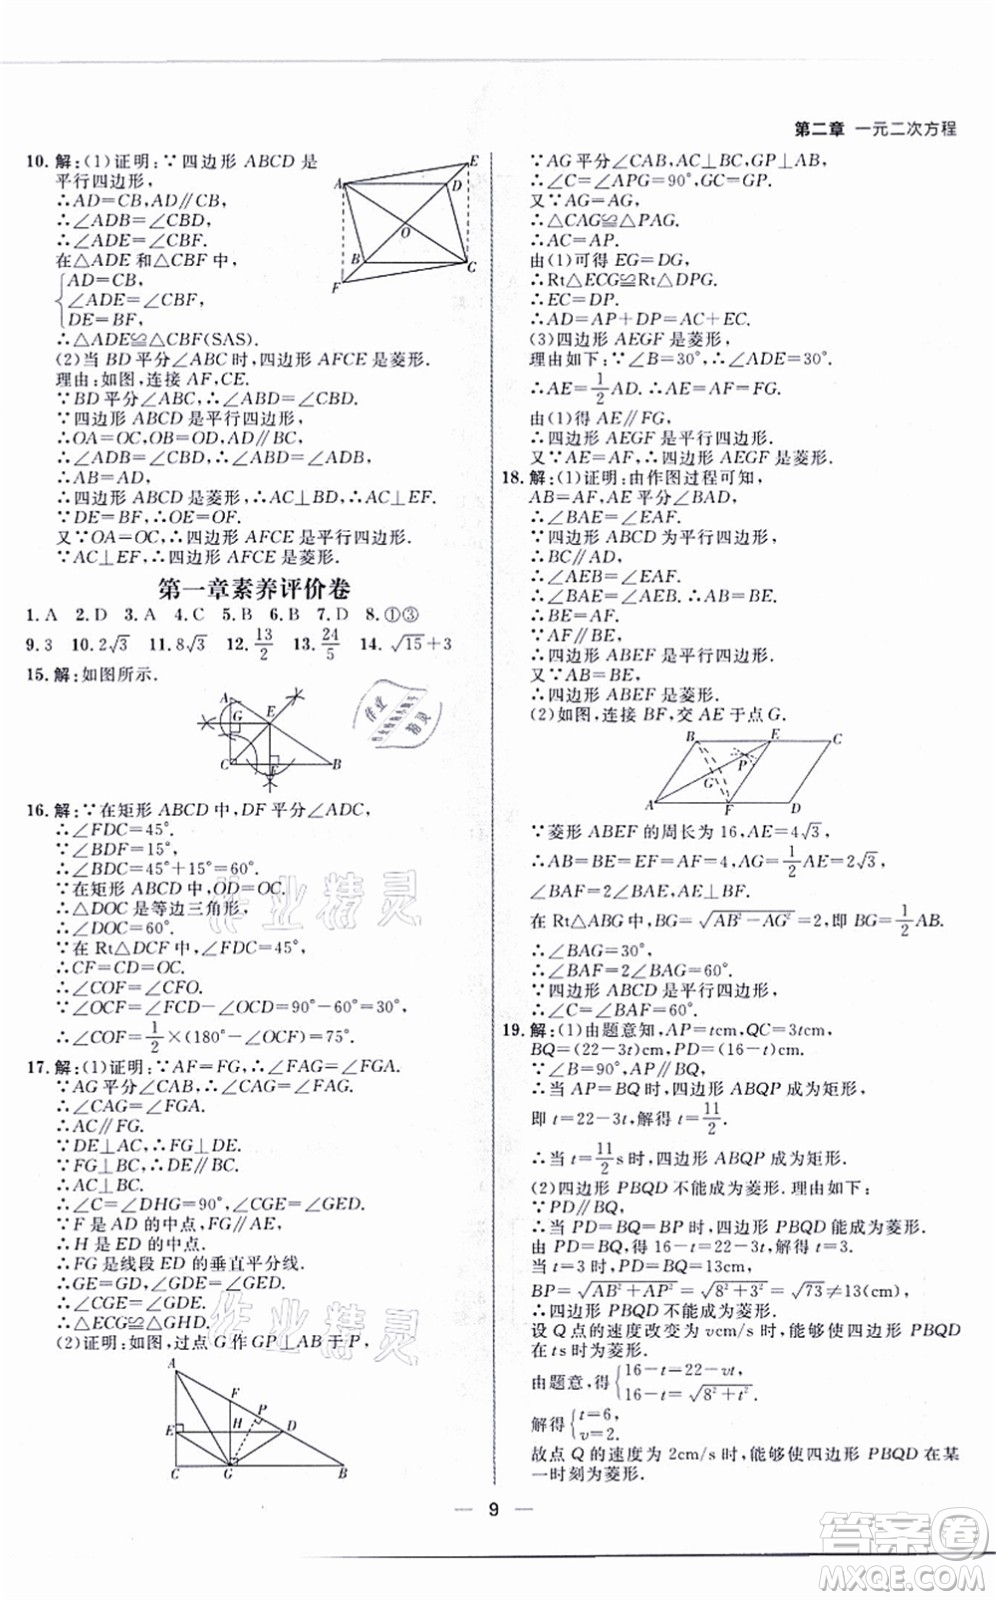 第二章 一元二次方程
10. 解:(1)证明:∵四边形 ABCD 是
平行四边形,
∴AD=CB,AD∥BC,
∴∠ADB=∠CBD.
∴∠ADE=∠CBF.
在△ADE 和△CBF 中,
AD=CB,
∠ADE=∠CBF,
DE=BF,
∴△ADE≌△CBF(SAS).
(2)当 BD 平分∠ABC 时,四边形 AFCE 是菱形.
理由:如图,连接 AF,CE.
∵BD 平分∠ABC,∴∠ABD=∠CBD.
∵四边形 ABCD 是平行四边形,
∴OA=OC,OB=OD,AD∥BC,
∴∠ADB=∠CBD.∴∠ABD=∠ADB.
∴AB=AD.
∴四边形 ABCD 是菱形,∴AC⊥BD,∴AC⊥EF.
∵DE=BF,∴OE=OF.
又∵OA=OC,∴四边形 AFCE 是平行四边形.
∵AC⊥EF,∴四边形 AFCE 是菱形.
第一章素养评价卷
1. A 2. D 3. A 4. C 5. B 6. B 7. D 8. ①③
9. 3 10. 2√3 11. 8√3 12. 13/2 13. 24/5 14. √15+3
15. 解:如图所示.
A
G E
C F B
16. 解:∵在矩形 ABCD 中,DF 平分∠ADC,
∴∠FDC=45°.
∵∠BDF=15°,
∴∠BDC=45°+15°=60°.
∵在矩形 ABCD 中,OD=OC.
∴△DOC 是等边三角形,
∴∠DOC=60°.
∵在 Rt△DCF 中,∠FDC=45°,
∴CF=CD=OC.
∴∠COF=∠CFO.
∵∠OCF=∠FCD-∠OCD=90°-60°=30°,
∴∠COF=1/2×(180°-∠OCF)=75°.
17. 解:(1)证明:∵AF=FG,∴∠FAG=∠FGA.
∵AG 平分∠CAB,∴∠CAG=∠FAG.
∴∠CAG=∠FGA.
∴AC∥FG.
∵DE⊥AC,∴FG⊥DE.
∵FG⊥BC,∴DE∥BC.
∴AC⊥BC.
∴∠C=∠DHG=90°,∠CGE=∠GED.
∵F 是 AD 的中点,FG∥AE,
∴H 是 ED 的中点.
∴FG 是线段 ED 的垂直平分线.
∴GE=GD,∠GDE=∠GED.
∴∠CGE=∠GDE.
∴△ECG≌△GHD.
(2)证明:如图,过点 G 作 GP⊥AB 于 P,
A
F P
E H D
C G B
∵AG 平分∠CAB,AC⊥BC,GP⊥AB,
∴∠C=∠APG=90°,GC=GP.
又∵AG=AG,
∴△CAG≌△PAG.
∴AC=AP.
由(1)可得 EG=DG,
∴Rt△ECG≌Rt△DPG.
∴EC=DP.
∴AD=AP+DP=AC+EC.
(3)四边形 AEGF 是菱形.
理由如下:∵∠B=30°,∴∠ADE=30°.
∴AE=1/2AD. ∴AE=AF=FG.
由(1)得 AE∥FG,
∴四边形 AEGF 是平行四边形.
又∵AE=AF,∴四边形 AEGF 是菱形.
18. 解:(1)证明:由作图过程可知,
AB=AF,AE 平分∠BAD,
∴∠BAE=∠EAF.
∵四边形 ABCD 为平行四边形,
∴BC∥AD.
∴∠AEB=∠EAF.
∴∠BAE=∠AEB.
∴AB=BE.
∴BE=AF.
∴四边形 ABEF 为平行四边形.
又∵AB=AF,
∴四边形 ABEF 是菱形.
(2)如图,连接 BF,交 AE 于点 G.
B E C
G P
A F D
∵菱形 ABEF 的周长为 16,AE=4√3,
∴AB=BE=EF=AF=4,AG=1/2AE=2√3,
∠BAF=2∠BAE,AE⊥BF.
在 Rt△ABG 中,BG=√(AB²-AG²)=2,即 BG=1/2AB.
∴∠BAG=30°.
∴∠BAF=2∠BAG=60°.
∵四边形 ABCD 是平行四边形,
∴∠C=∠BAF=60°.
19. 解:(1)由题意知,AP=tcm,QC=3tcm,
BQ=(22-3t)cm,PD=(16-t)cm,
∵∠B=90°,AP∥BQ,
∴当 AP=BQ 时,四边形 ABQP 成为矩形,
即 t=22-3t,解得 t=11/2.
∴当 t=11/2s 时,四边形 ABQP 成为矩形.
(2)四边形 PBQD 不能成为菱形.理由如下:
∵PD∥BQ,
∴当 PD=BQ=BP 时,四边形 PBQD 能成为菱形.
由 PD=BQ,得 16-t=22-3t,解得 t=3.
当 t=3 时,PD=BQ=13cm,
BP=√(AB²+AP²)=√(8²+3²)=√73≠13cm,
∴四边形 PBQD 不能成为菱形.
设 Q 点的速度改变为 vcm/s 时,能够使四边形 PBQD
在 ts 时为菱形.
由题意,得 16-t=22-vt,
16-t=√(8²+t²).
解得 t=6,
v=2.
故点 Q 的速度为 2cm/s 时,能够使四边形 PBQD 在某
一时刻为菱形.
— 9 —
答案卷
MXQE.COM